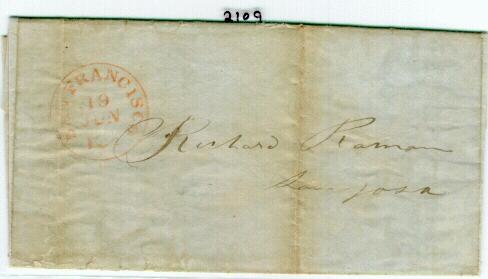 2109
SAN FRANCISCO
19
JUN
Richard Roman
San Josa